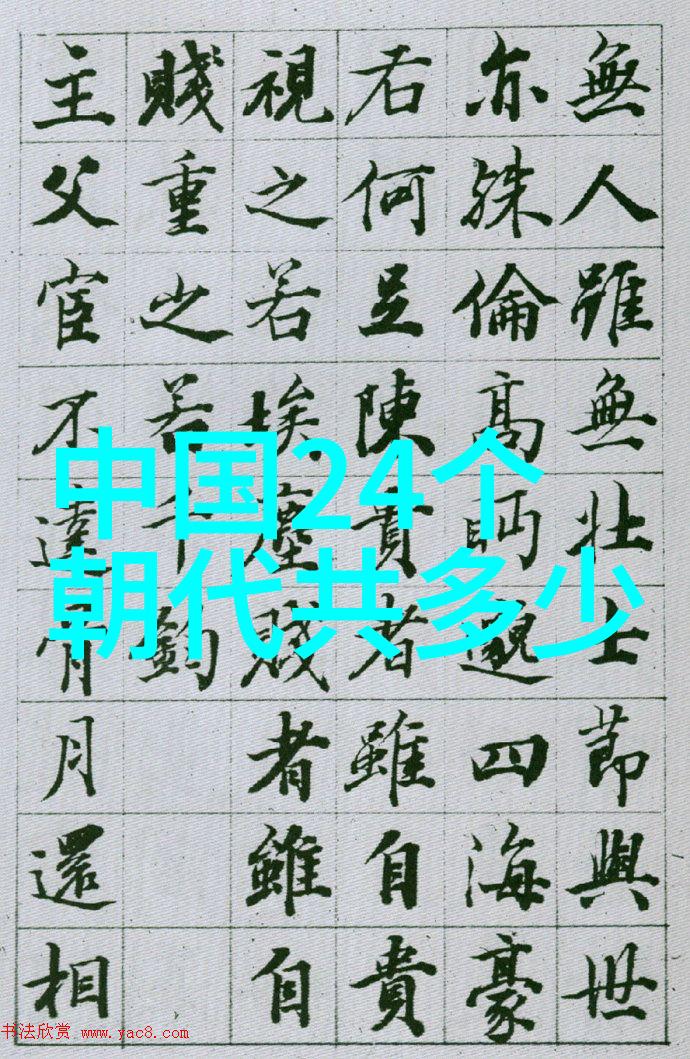 無人雖無壯士節與世
亦殊倫高眄邈四海豪
右何足陳貴者雖自貴
視之若埃塵賤者雖自
賤重之若千鈞
主父宦不達骨月還相
中国24个
朝代共多少
书法欣赏 www.yac8.com